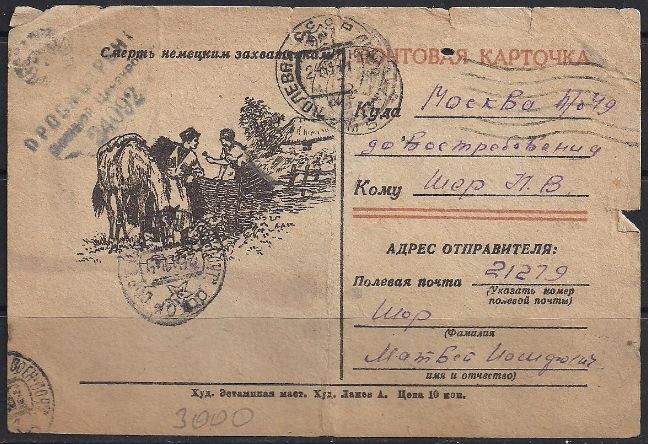 Смерть немецким захватчикам!
ПОЧТОВАЯ КАРТОЧКА
24092
Куда Москва п/о 49
до Востребования
Кому Шор П. В
АДРЕС ОТПРАВИТЕЛЯ:
Полевая почта 21279
(Указать номер
полевой почты)
Шор
(Фамилия)
Матвей Иосифович
имя и отчество)
Худ. Эстампная маст. Худ. Ланев А. Цена 10 коп.
3000